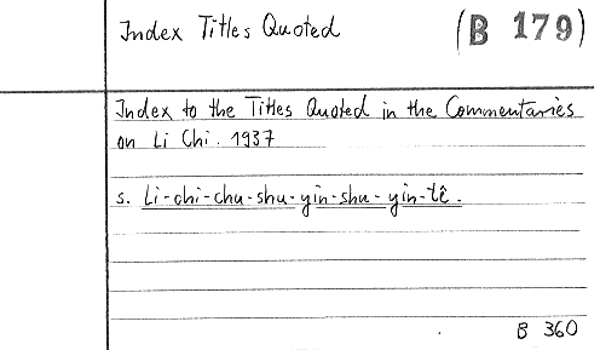 Index Titles Quoted
(B 179)
Index to the Titles Quoted in the Commentaries
on Li Chi. 1937
s. Li-chi-chu-shu-yin-shu-yin-tê.
B 360